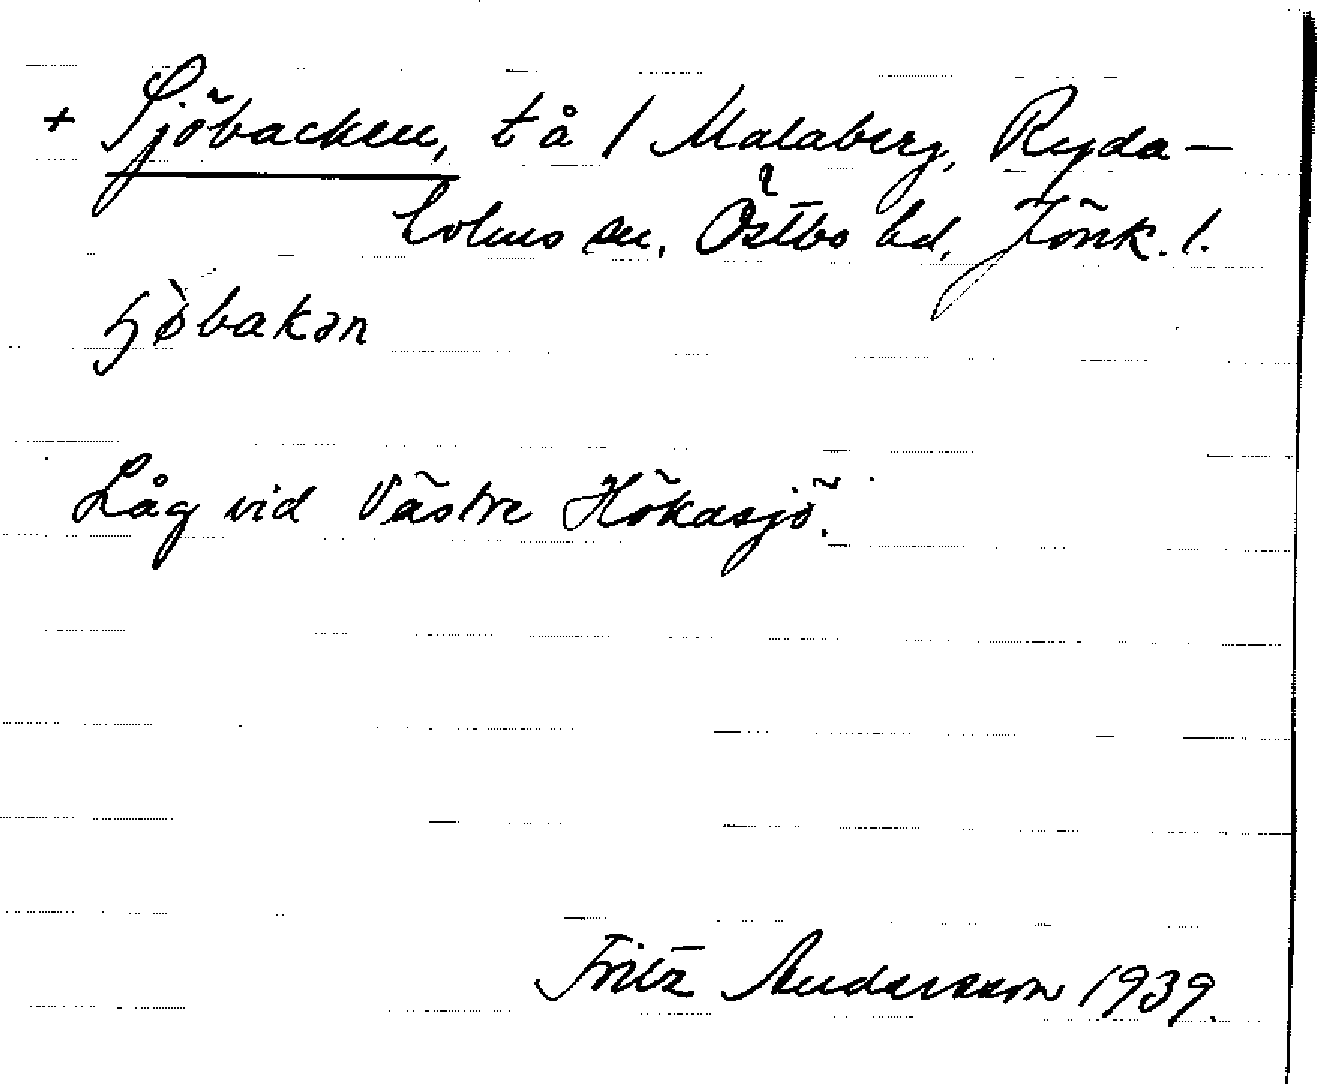 + Sjöbacken, t å / Malaberg, Ryda-
holms sn, Östbo hd, Jönk. l.
ɧö̀bakən
Låg vid Västra Hökasjö.
Fritz Andersson 1939.